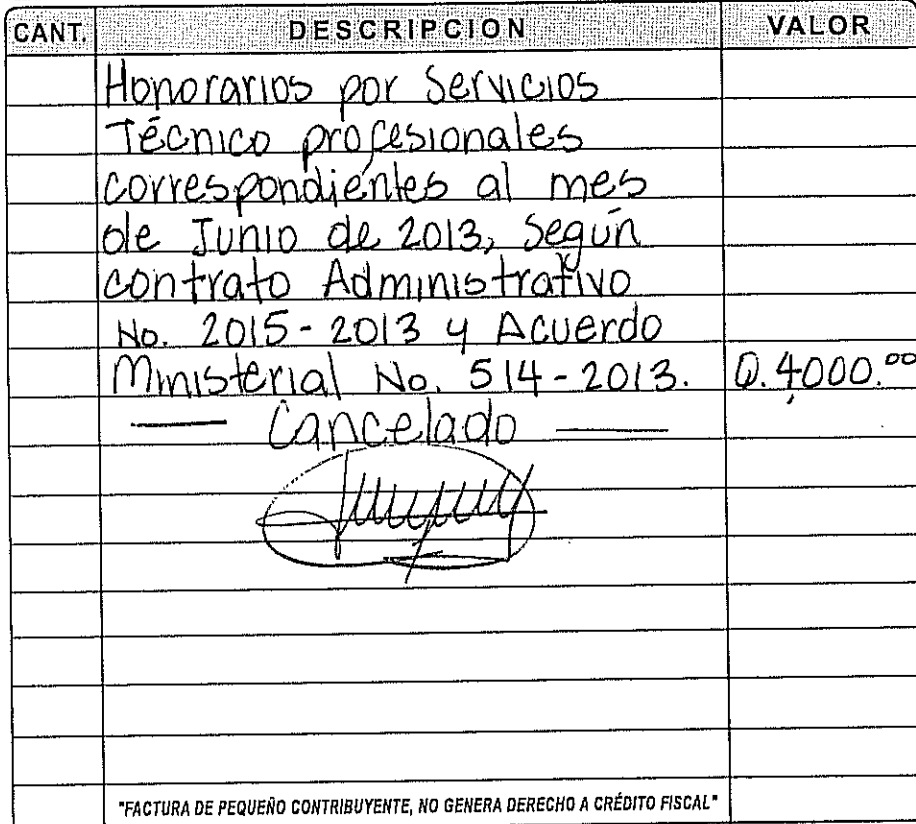 CANT. DESCRIPCION VALOR
Honorarios por Servicios
Técnico profesionales
correspondientes al mes
de Junio de 2013, Según
contrato Administrativo
No. 2015-2013 y Acuerdo
Ministerial No. 514-2013. Q.4,000.00
— Cancelado —
"FACTURA DE PEQUEÑO CONTRIBUYENTE, NO GENERA DERECHO A CRÉDITO FISCAL"